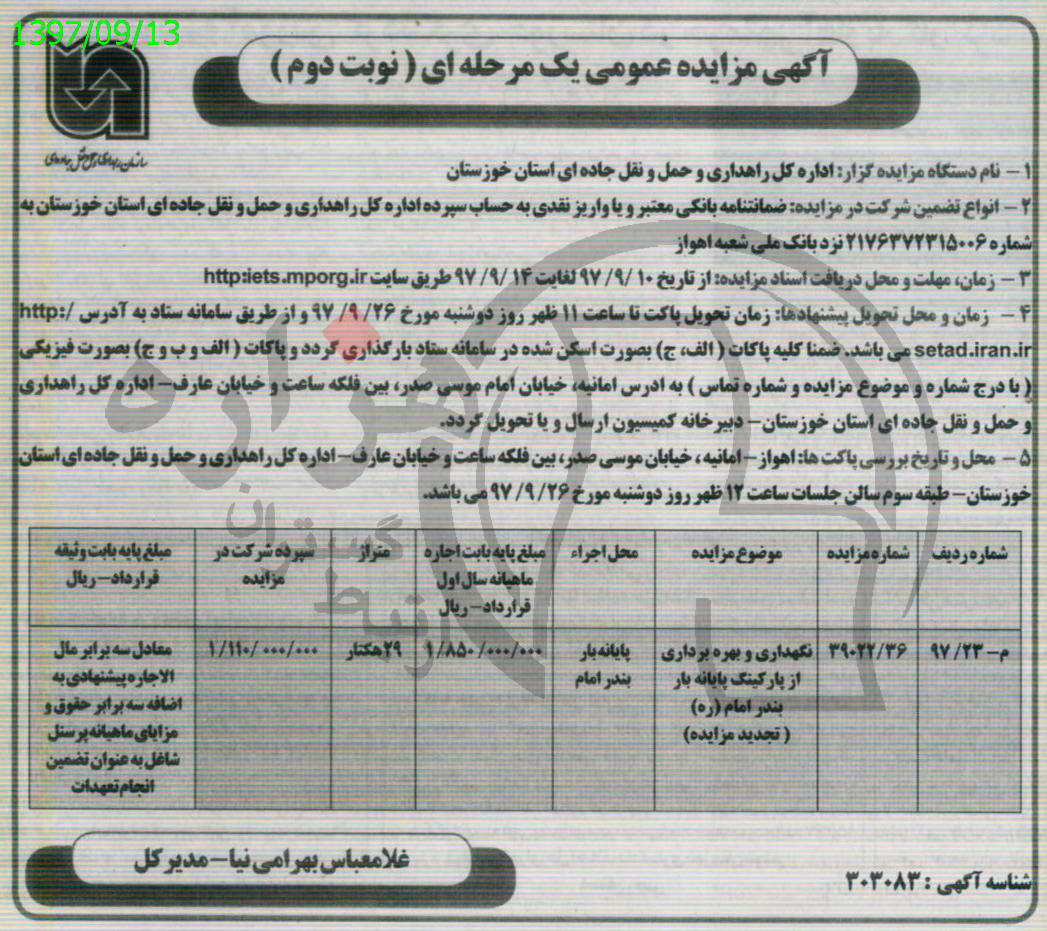 1397/09/13
آگهی مزایده عمومی یک مرحله ای ( نوبت دوم )
۱ – نام دستگاه مزایده گزار: اداره کل راهداری و حمل و نقل جاده ای استان خوزستان
۲ – انواع تضمین شرکت در مزایده: ضمانتنامه بانکی معتبر و یا واریز نقدی به حساب سپرده اداره کل راهداری و حمل و نقل جاده ای استان خوزستان به
شماره ۲۱۷۶۳۷۲۳۱۵۰۰۶ نزد بانک ملی شعبه اهواز
۳ – زمان، مهلت و محل دریافت اسناد مزایده: از تاریخ ۱۰ /۹/ ۹۷ لغایت ۱۴ /۹/ ۹۷ طریق سایت http:iets.mporg.ir
۴ – زمان و محل تحویل پیشنهادها: زمان تحویل پاکت تا ساعت ۱۱ ظهر روز دوشنبه مورخ ۲۶/ ۹/ ۹۷ و از طریق سامانه ستاد به آدرس http:/
setad.iran.ir می باشد. ضمنا کلیه پاکات ( الف، ج) بصورت اسکن شده در سامانه ستاد بارگذاری گردد و پاکات ( الف و ب و ج) بصورت فیزیکی
( با درج شماره و موضوع مزایده و شماره تماس ) به ادرس امانیه، خیابان امام موسی صدر، بین فلکه ساعت و خیابان عارف– اداره کل راهداری
و حمل و نقل جاده ای استان خوزستان– دبیرخانه کمیسیون ارسال و یا تحویل گردد.
۵ – محل و تاریخ بررسی پاکت ها: اهواز – امانیه ، خیابان موسی صدر، بین فلکه ساعت و خیابان عارف – اداره کل راهداری و حمل و نقل جاده ای استان
خوزستان– طبقه سوم سالن جلسات ساعت ۱۲ ظهر روز دوشنبه مورخ ۲۶/ ۹/ ۹۷ می باشد.
شماره ردیف شماره مزایده موضوع مزایده محل اجراء مبلغ پایه بابت اجاره متراژ سپرده شرکت در مبلغ پایه بابت وثیقه
ماهیانه سال اول مزایده قرارداد– ریال
قرارداد– ریال
م– ۹۷/۲۳ ۳۹۰۲۲/۳۶ نگهداری و بهره برداری پایانه بار ۱/۸۵۰/۰۰۰/۰۰۰ ۲۹هکتار ۱/۱۱۰/۰۰۰/۰۰۰ معادل سه برابر مال
از پارکینگ پایانه بار بندر امام الاجاره پیشنهادی به
بندر امام (ره) اضافه سه برابر حقوق و
( تجدید مزایده) مزایای ماهیانه پرسنل
شاغل به عنوان تضمین
انجام تعهدات
غلامعباس بهرامی نیا – مدیر کل
شناسه آگهی : ۳۰۳۰۸۳
هزاره
گستران
ارتباط